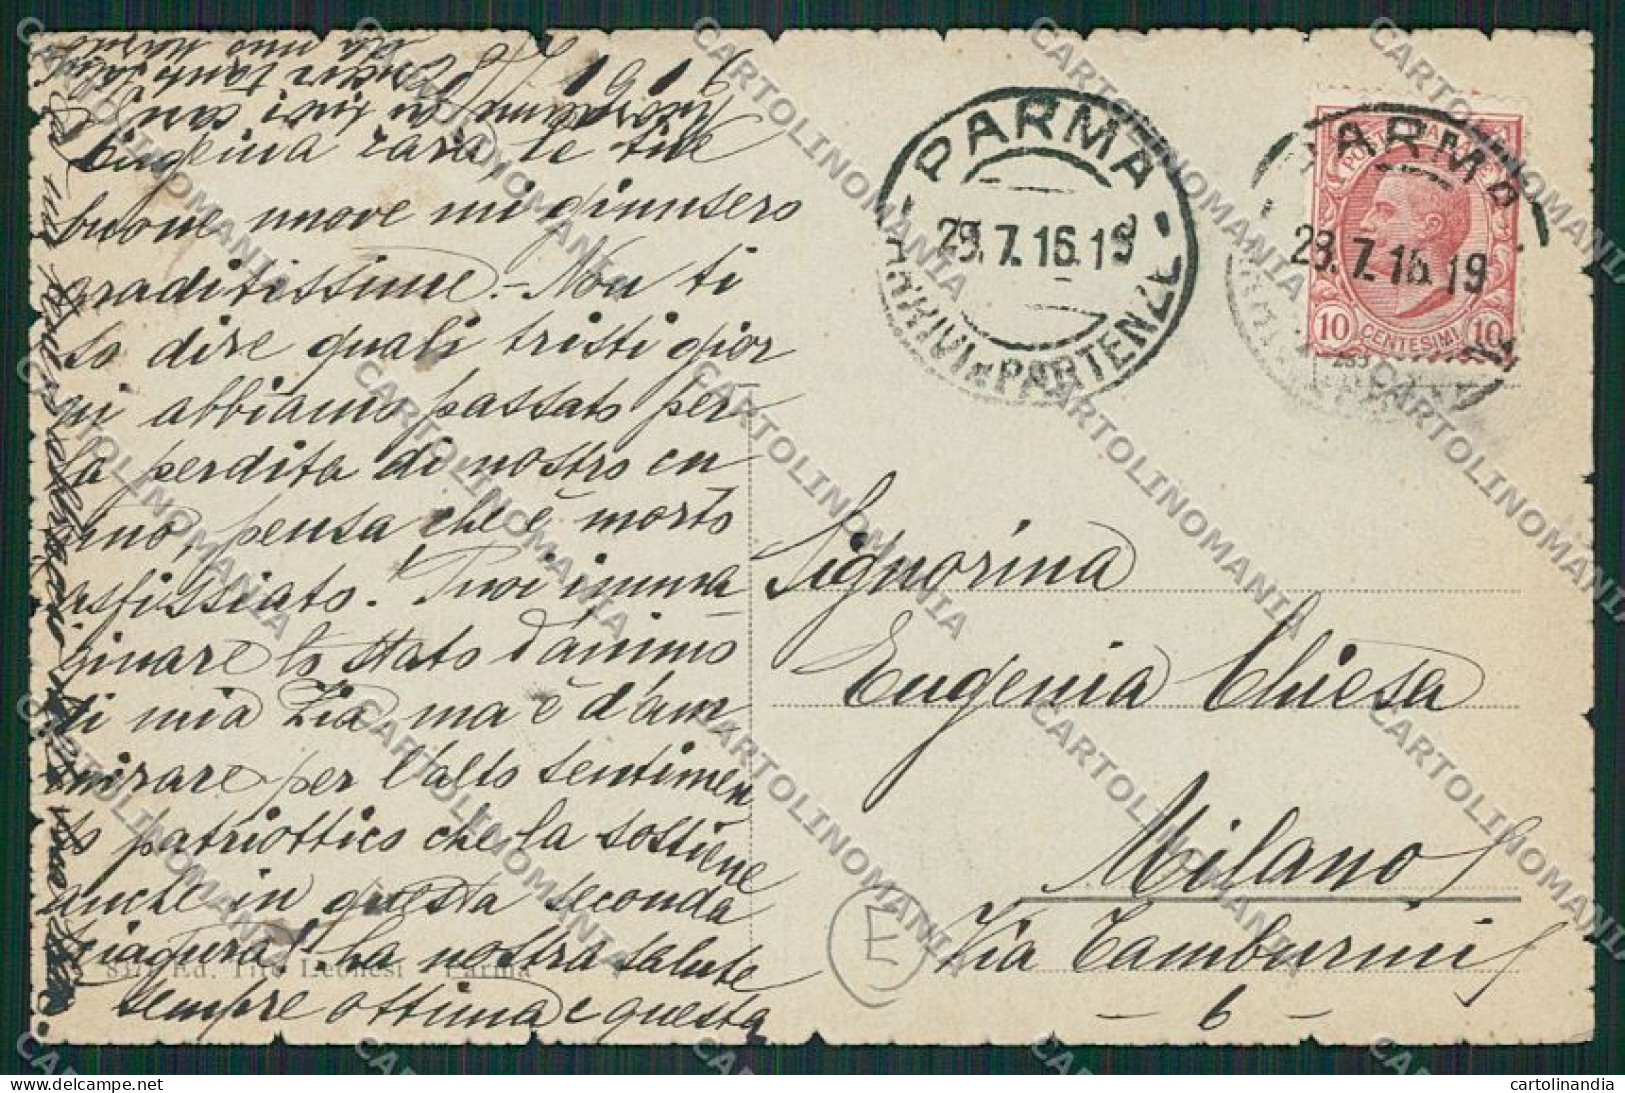 1916
Eugenia cara le tue
buone nuove mi giunsero
graditissime. - Non ti
so dire quali tristi gior
ni abbiamo passato per
la perdita di nostro cu
gino, pensa che è morto
asfissiato! Puoi imma
ginare lo stato d'animo
di mia Zia ma è d'am
mirare per l'alto sentimen
to patriottico che la sostiene
anche in questa seconda
sciagura! La nostra salute
sempre ottima e questa
Ed. Tito Leonesi - Parma
PARMA
29.7.16.19
ARRIVI E PARTENZE
PARMA
28.7.16.19
POSTE ITALIANE
10 CENTESIMI 10
Signorina
Eugenia Chiesa
Milano
Via Tamburini
- 6 -
F
CARTOLINOMANIA
cartolinandia